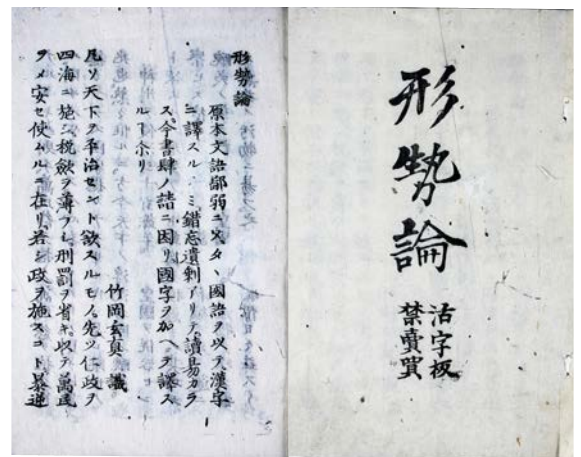 形勢論
活字板
禁賣買
形勢論
原本文語鄙弱ニ〆タヽ國語ヲ以テ漢字
ニ譯スルノミ錯忘遺剰アリテ讀易カラ
ス今書肆ノ請ニ因リ國字ヲ加ヘテ譯ス
ル
竹岡玄真 識
凡ソ天下ヲ平治セント欲スルモノハ先ツ仁政ヲ
四海ニ施シ税斂ヲ薄フシ刑罰ヲ省キ以テ萬民
ヲ〆安セ使ムルニ在リ若シ政ヲ施スコト暴逆